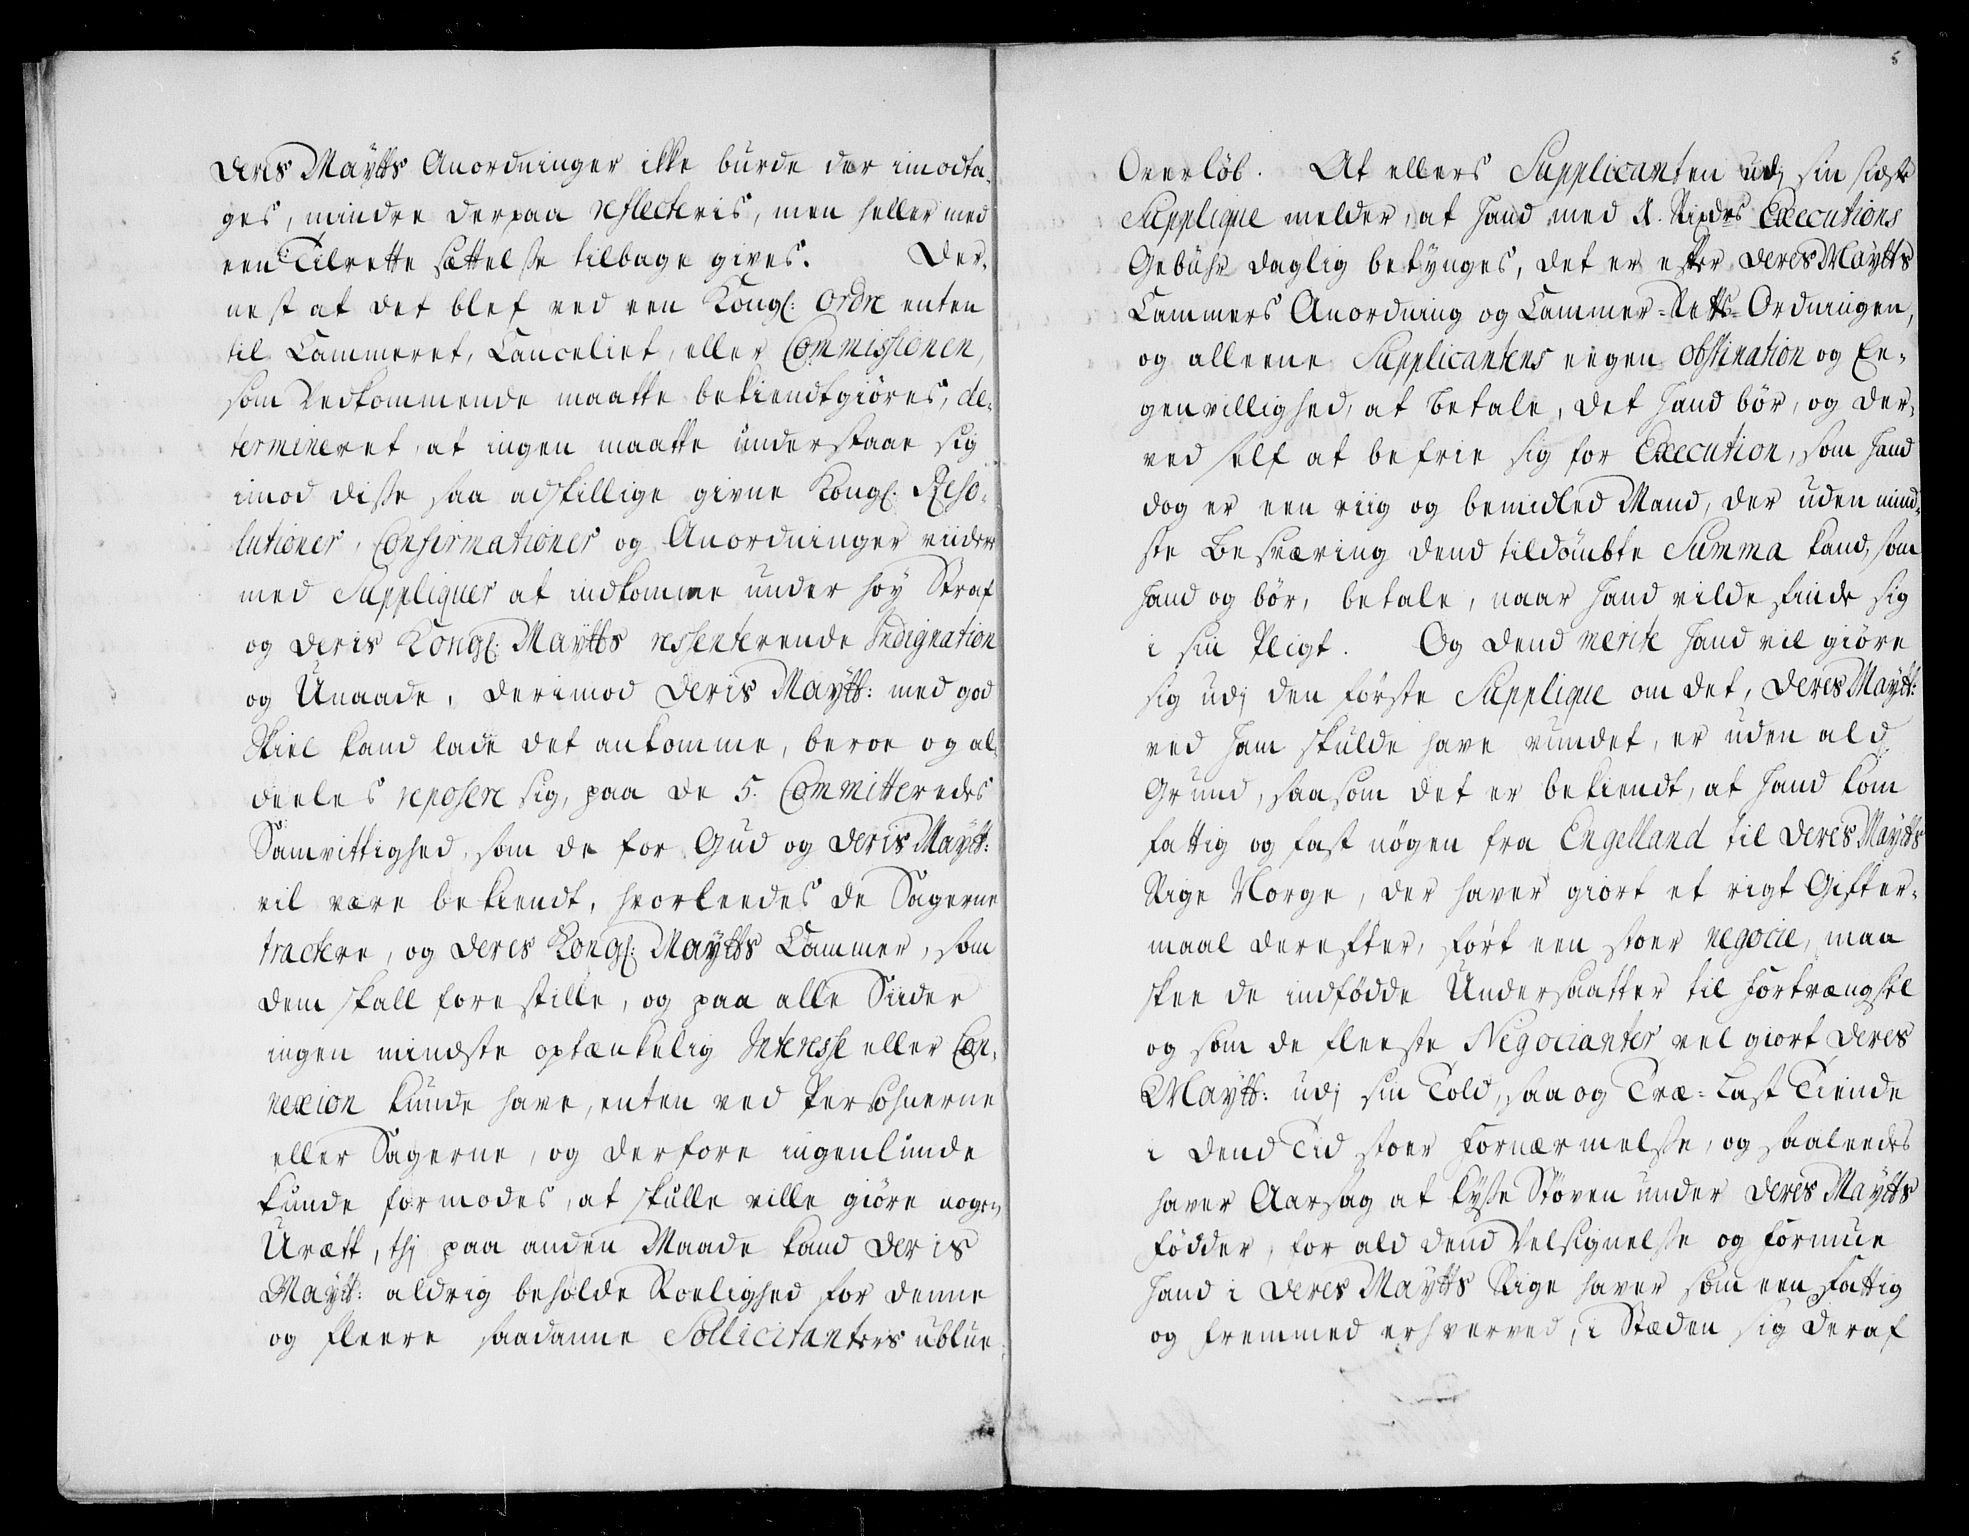 Deris Maytts Anordninger ikke burde der imodta¬
ges, mindre derpaa reflecteris, men heller med
een Tilrette sættelsse tilbage gives. Der¬
nest at det blef ved een Kongl: Ordre enten
til Cammeret, Canceliet, eller Commissionen,
som Vedkommende maatte bekiendtgiöres, de¬
termineret, at ingen maatte understaae sig
imod disse saa adskillige givne Kongl: Reso¬
lutioner, Confirmationer og Anordninger viidere
med Suppliquer at indkomme under höy Straf
og Deris Kongl: Maytts ressenterende Indignation
og Unaade, derimod Deris Maytt: med god
Skiel kand lade det ankomme, beroe og al¬
deeles reposere sig, paa de 5. Committeredes
Samvittighed, som de for Gud og Deris Maytt:
vil være bekiendt, hvorleedes de Sagerne
tractere, og Deres Kongl: Maytts Cammer, som
dem skall forestille, og paa alle Siider
ingen mindste optænkelig Interesse eller Con¬
nexion kunde have, enten ved Persohnerne
eller Sagerne, og derfore ingenlunde
kunde formodes, at skulle ville giöre nogen
Urætt, thj paa anden Maade kand Deris
Maytt: aldrig beholde Roelighed for denne
og fleere saadanne Sollicitanters ublue
5
Overlöb. At ellers Supplicanten udj sin sidste
Supplique melder, at hand med Rixdrs Executions
Gebühr daglig betynges, det er efter Deres Maytts
Cammers Anordning og Cammer-Retts-Ordningen,
og alleene Supplicantens eegen obstination og Ee¬
genvillighed, at betale, det hand bör, og der¬
ved self at befrie sig for Execution, som hand
dog er een riig og bemidled Mand, der uden mind¬
ste Besværing dend tildömbte Summa kand, som
hand og bör, betale, naar hand vilde finde sig
i sin Pligt. Og dend merite hand vil giöre
sig udj den förste Supplique om det, Deres Maytt:
ved ham skulde have vundet, er uden ald
Grund, saasom det er bekiendt, at hand kom
fattig og fast nögen fra Engelland til Deres Maytts
Rige Norge, der haver giort et rigt Gifter¬
maal derefter, fört een stoer negocie, maa
skee de indfödde Undersaatter til Fortrængsel
og som de fleeste Negocianter vel giort Deres
Maytt: udj sin Told, saa og Træ-Last Tiende
i dend Tid stoer Fornærmelsse, og saaleedes
haver Aarsag at kysse Stöven under Deres Maytts
födder, for ald dend Velsignelsse og Formue
hand i Deres Maytts Rige haver som een fattig
og fremmed erhverved, i Stæden sig deraf